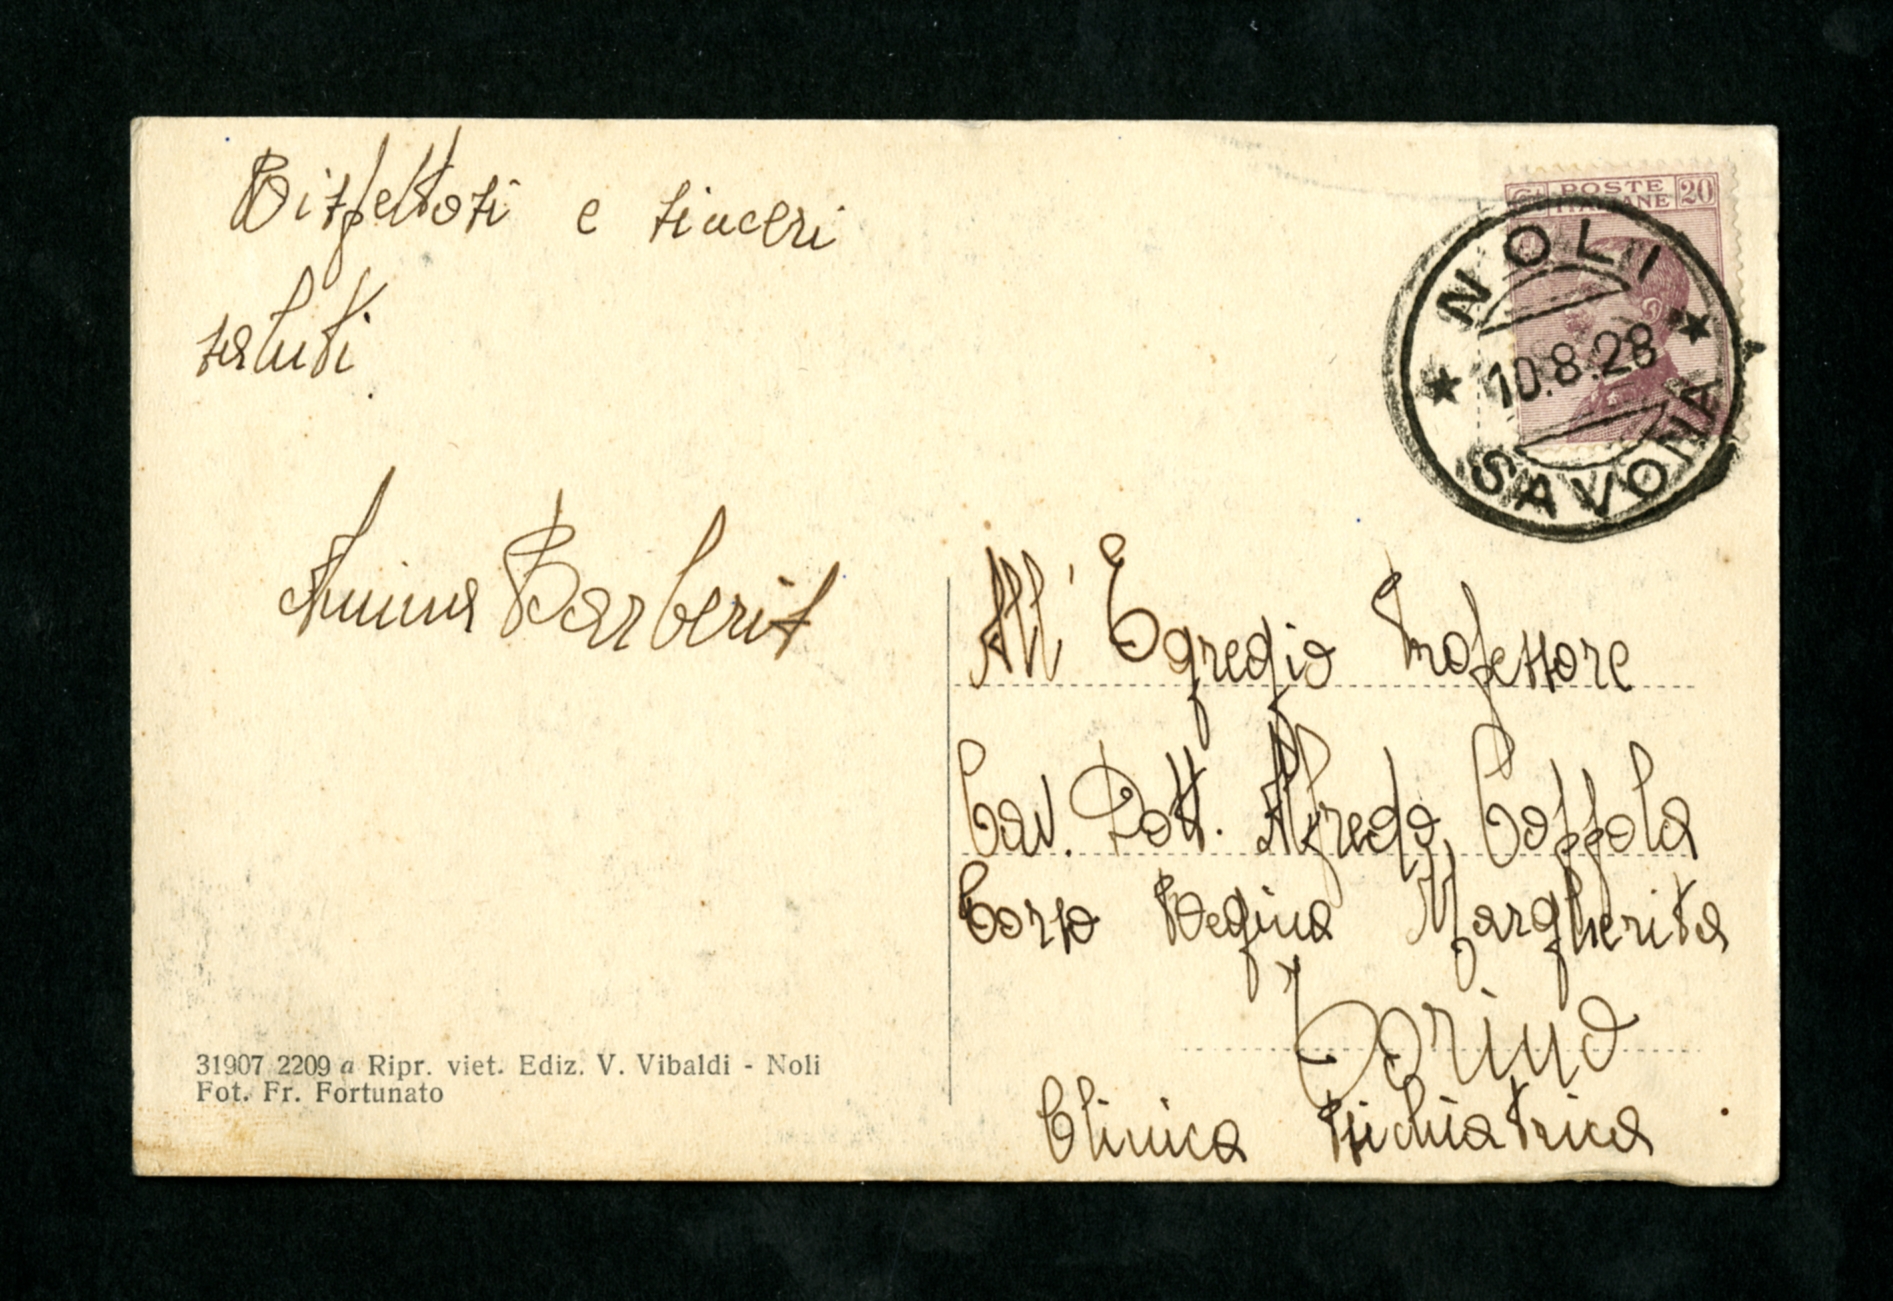 Rispettosi e sinceri
saluti
Barberis
All' Egregio Professore
Cav. Dott. Alfredo Coppola
Corso Regina Margherita
Torino
Clinica Psichiatrica
31907 2209 a Ripr. viet. Ediz. V. Vibaldi - Noli
Fot. Fr. Fortunato
POSTE 20
ITALIANE
NOLI
10.8.28
SAVONA